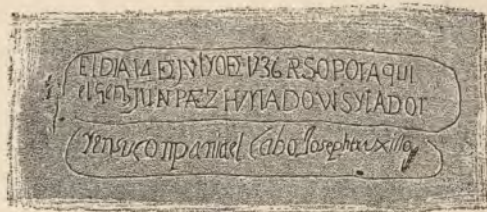 El DIA 14 DE JULYO DE 1736 PASO POR AQUI
el Genl JUN PAEZ HURTADO VISYTADOR
Y en su conpania el Cabo Joseph truxillo